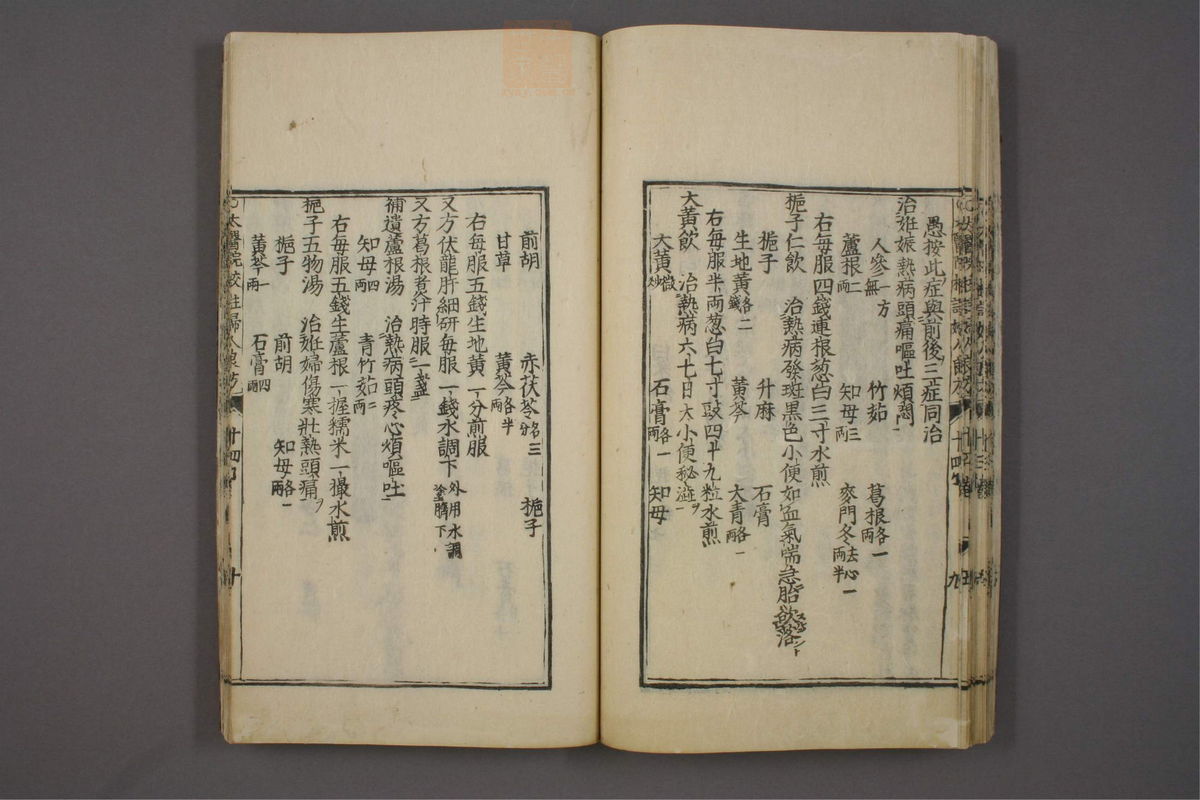 愚按此症與前後三症同治
治姙娠熱病頭痛嘔吐煩悶
人參一方無 竹茹 葛根各一兩
蘆根二兩 知母三兩 麥門冬去心一兩半
右每服四錢連根葱白三寸水煎
梔子仁飲 治熱病發斑黑色小便如血氣喘急胎欲落
梔子 升麻 石膏
生地黃各二錢 黃芩 大青各一兩
右每服半兩葱白七寸豉四十九粒水煎
大黃飲 治熱病六七日大小便秘澁
大黃微炒 石膏各一兩 知母
前胡 赤茯苓各三分 梔子
甘草 黃芩各半兩
右每服五錢生地黃一分煎服
又方伏龍肝細研每服一錢水調下外用水調塗臍下
又方葛根煮汁時服一盞
補遺蘆根湯 治熱病頭疼心煩嘔吐
知母四兩 青竹茹二兩
右每服五錢生蘆根一握糯米一撮水煎
梔子五物湯 治姙婦傷寒壯熱頭痛
梔子 前胡 知母各一兩
黃芩一兩 石膏四兩
太醫院校註婦人良方 十四卷 十
九